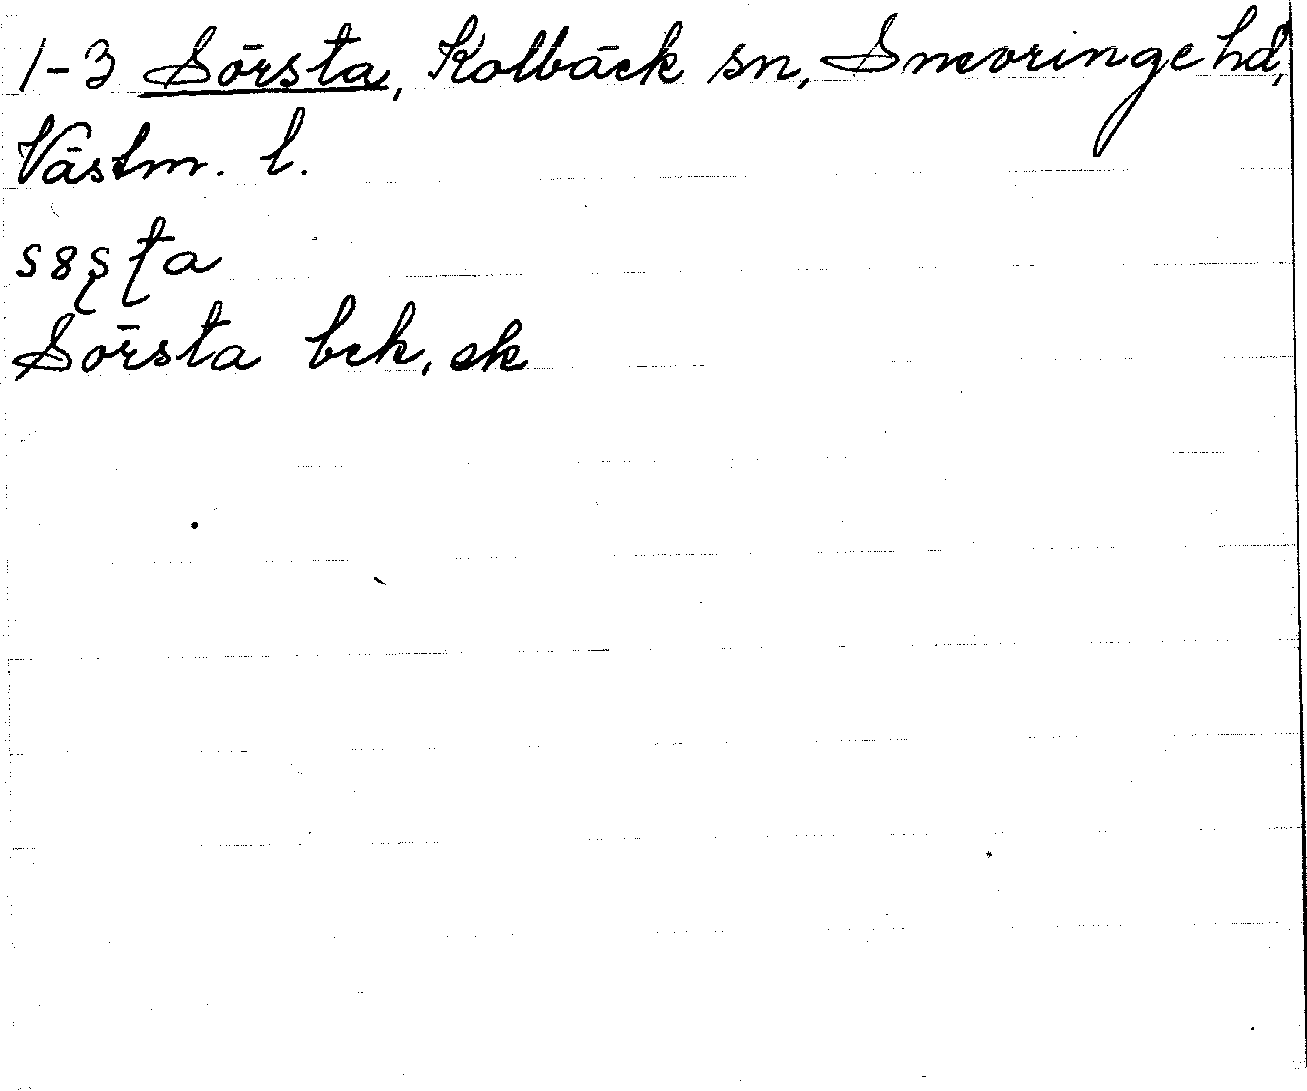 1-3 Sörsta, Kolbäck sn, Snevringe hd,
Västm. l.
s8ʂʈa
Sörsta bek, ek